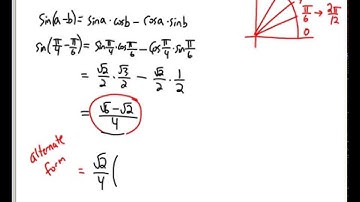 sin(a-b) = sina·cosb - cosa·sinb
sin(π/4 - π/6) = sin π/4 · cos π/6 - cos π/4 · sin π/6
= √2/2 · √3/2 - √2/2 · 1/2
= (√6-√2)/4
alternate
form
= √2/4 (
π/6 → 2π/12
0